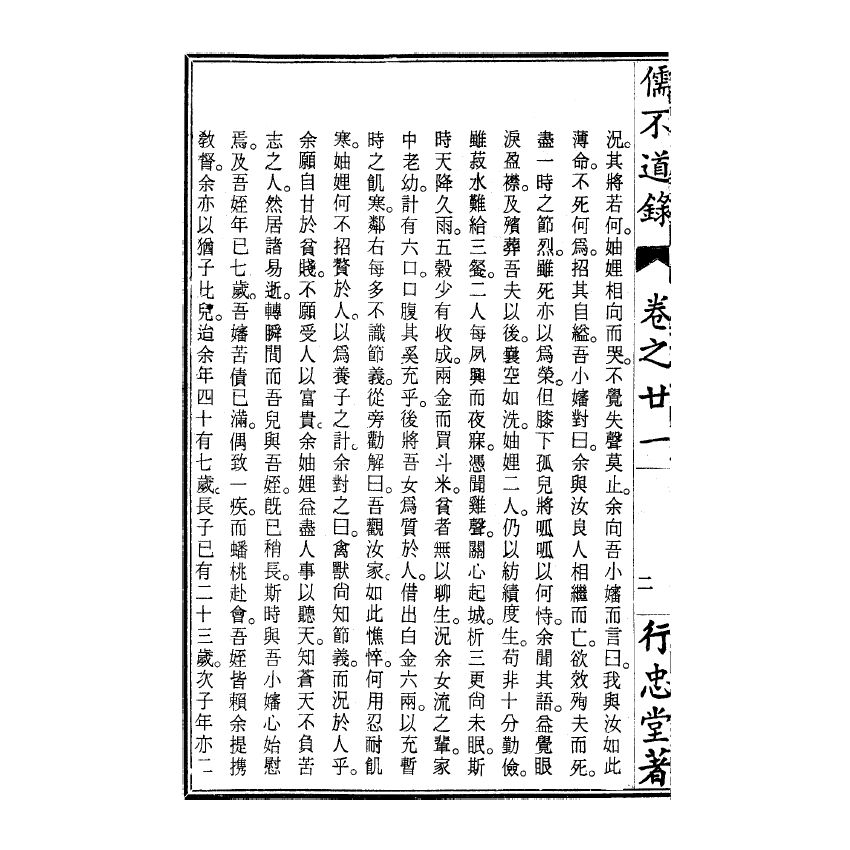 儒不道錄 卷之廿一 二 行忠堂著
況。其將若何。妯娌相向而哭。不覺失聲莫止。余向吾小嬸而言曰。我與汝如此
薄命。不死何為。招其自縊。吾小嬸對曰。余與汝良人相繼而亡。欲效殉夫而死。
盡一時之節烈。雖死亦以為榮。但膝下孤兒將呱呱以何恃。余聞其語。益覺眼
淚盈襟。及殯葬吾夫以後。囊空如洗。妯娌二人。仍以紡績度生。苟非十分勤儉。
雖菽水難給三餐。二人每夙興而夜寐。憑聞雞聲。關心起城。析三更尚未眠。斯
時天降久雨。五穀少有收成。兩金而買斗米。貧者無以聊生。況余女流之輩。家
中老幼。計有六口。口腹其奚充乎。後將吾女為質於人。借出白金六兩。以充暫
時之飢寒。鄰右每多不識節義。從旁勸解曰。吾觀汝家。如此憔悴。何用忍耐飢
寒。妯娌何不招贅於人。以為養子之計。余對之曰。禽獸尚知節義。而況於人乎。
余願自甘於貧賤。不願受人以富貴。余妯娌益盡人事以聽天。知蒼天不負苦
志之人。然居諸易逝。轉瞬間而吾兒與吾姪。旣已稍長。斯時與吾小嬸心始慰
焉。及吾姪年已七歲。吾嬸苦債已滿。偶致一疾。而蟠桃赴會。吾姪皆賴余提携
敎督。余亦以猶子比兒。迨余年四十有七歲。長子已有二十三歲。次子年亦二